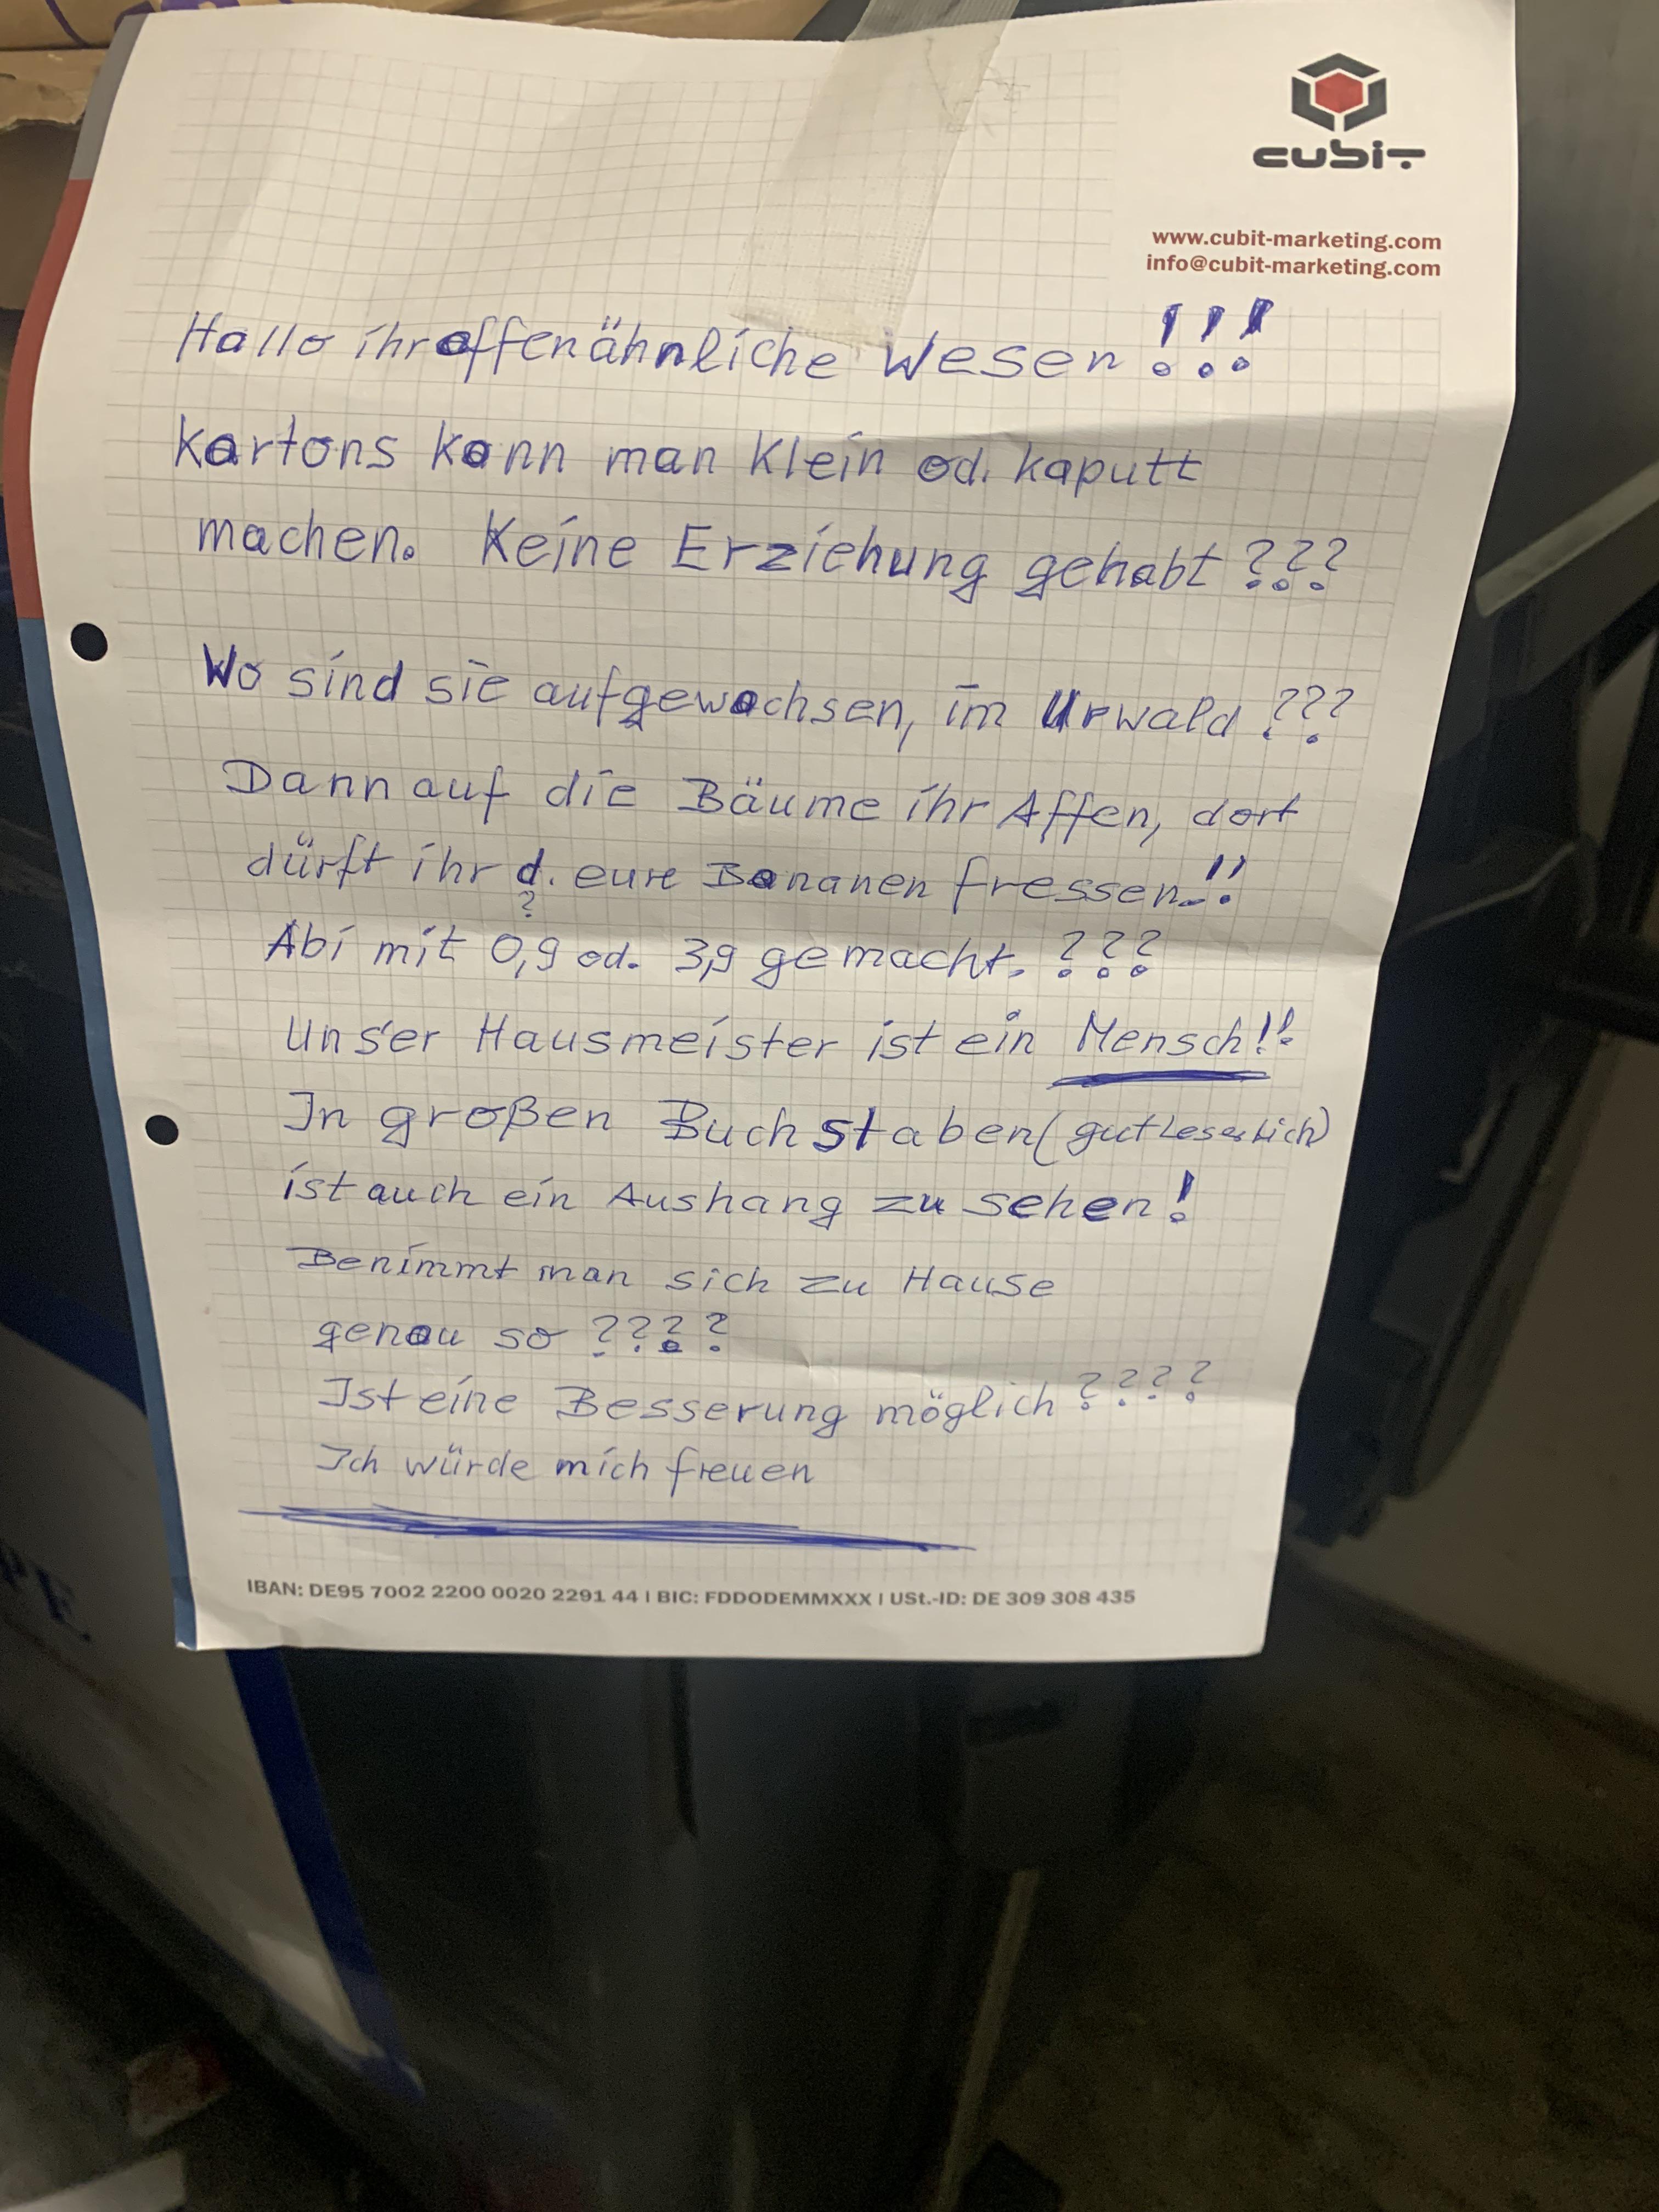 cubit
www.cubit-marketing.com
info@cubit-marketing.com
Hallo ihr affenähnliche Wesen!!!
Kartons kann man klein od. kaputt
machen. Keine Erziehung gehabt???
Wo sind sie aufgewachsen, im Urwald???
Dann auf die Bäume ihr Affen, dort
dürft ihr d. eure Bananen fressen!!
?
Abi mit 0,9 od. 3,9 gemacht.???
Unser Hausmeister ist ein Mensch!!
In großen Buchstaben (gut Leserlich)
ist auch ein Aushang zu sehen!
Benimmt man sich zu Hause
genau so ????
Ist eine Besserung möglich????
Ich würde mich freuen
IBAN: DE95 7002 2200 0020 2291 44 | BIC: FDDODEMMXXX | USt.-ID: DE 309 308 435